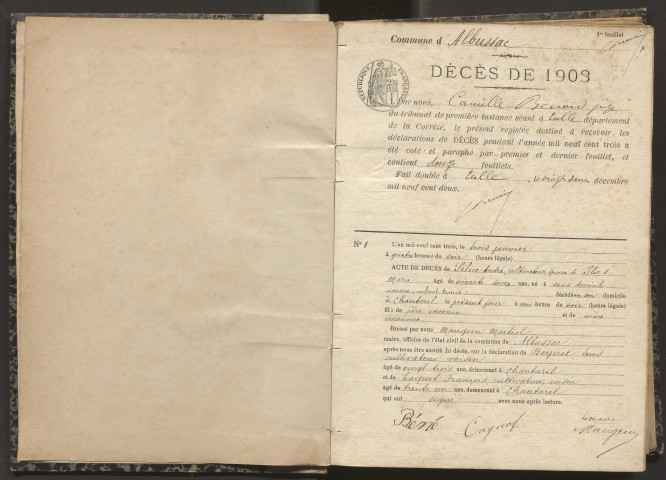 Commune d'Albussac
1er feuillet
DÉCÈS DE 1903
RÉPUBLIQUE FRANÇAISE
Par nous, Camille juge
du tribunal de première instance séant à Tulle département
de la Corrèze, le présent registre destiné à recevoir les
déclarations de DÉCÈS pendant l'année mil neuf cent trois a
été coté et paraphé par premier et dernier feuillet, et
contient douze feuillets.
Fait double à Tulle, le vingt deux décembre
mil neuf cent deux.
N° 1
L'an mil neuf cent trois, le trois janvier
à quatre heures du soir (heure légale)
ACTE DE DÉCÈS de André, cultivateur, époux de
Marie âgé de soixante ans, né à
décédé en son domicile
à Chantarel le présent jour à une heure du soir (heure légale)
fils de père inconnu et de mère
inconnue
Dressé par nous Maugein Martial
maire, officier de l'état civil de la commune de Albussac
après nous être assuré du décès, sur la déclaration de
cultivateur voisin
âgé de vingt trois ans, demeurant à Chantarel
et de Coquot François, cultivateur, voisin
âgé de trente un ans, demeurant à Chantarel
qui ont signé avec nous après lecture.
Le maire
Coquot
Maugein